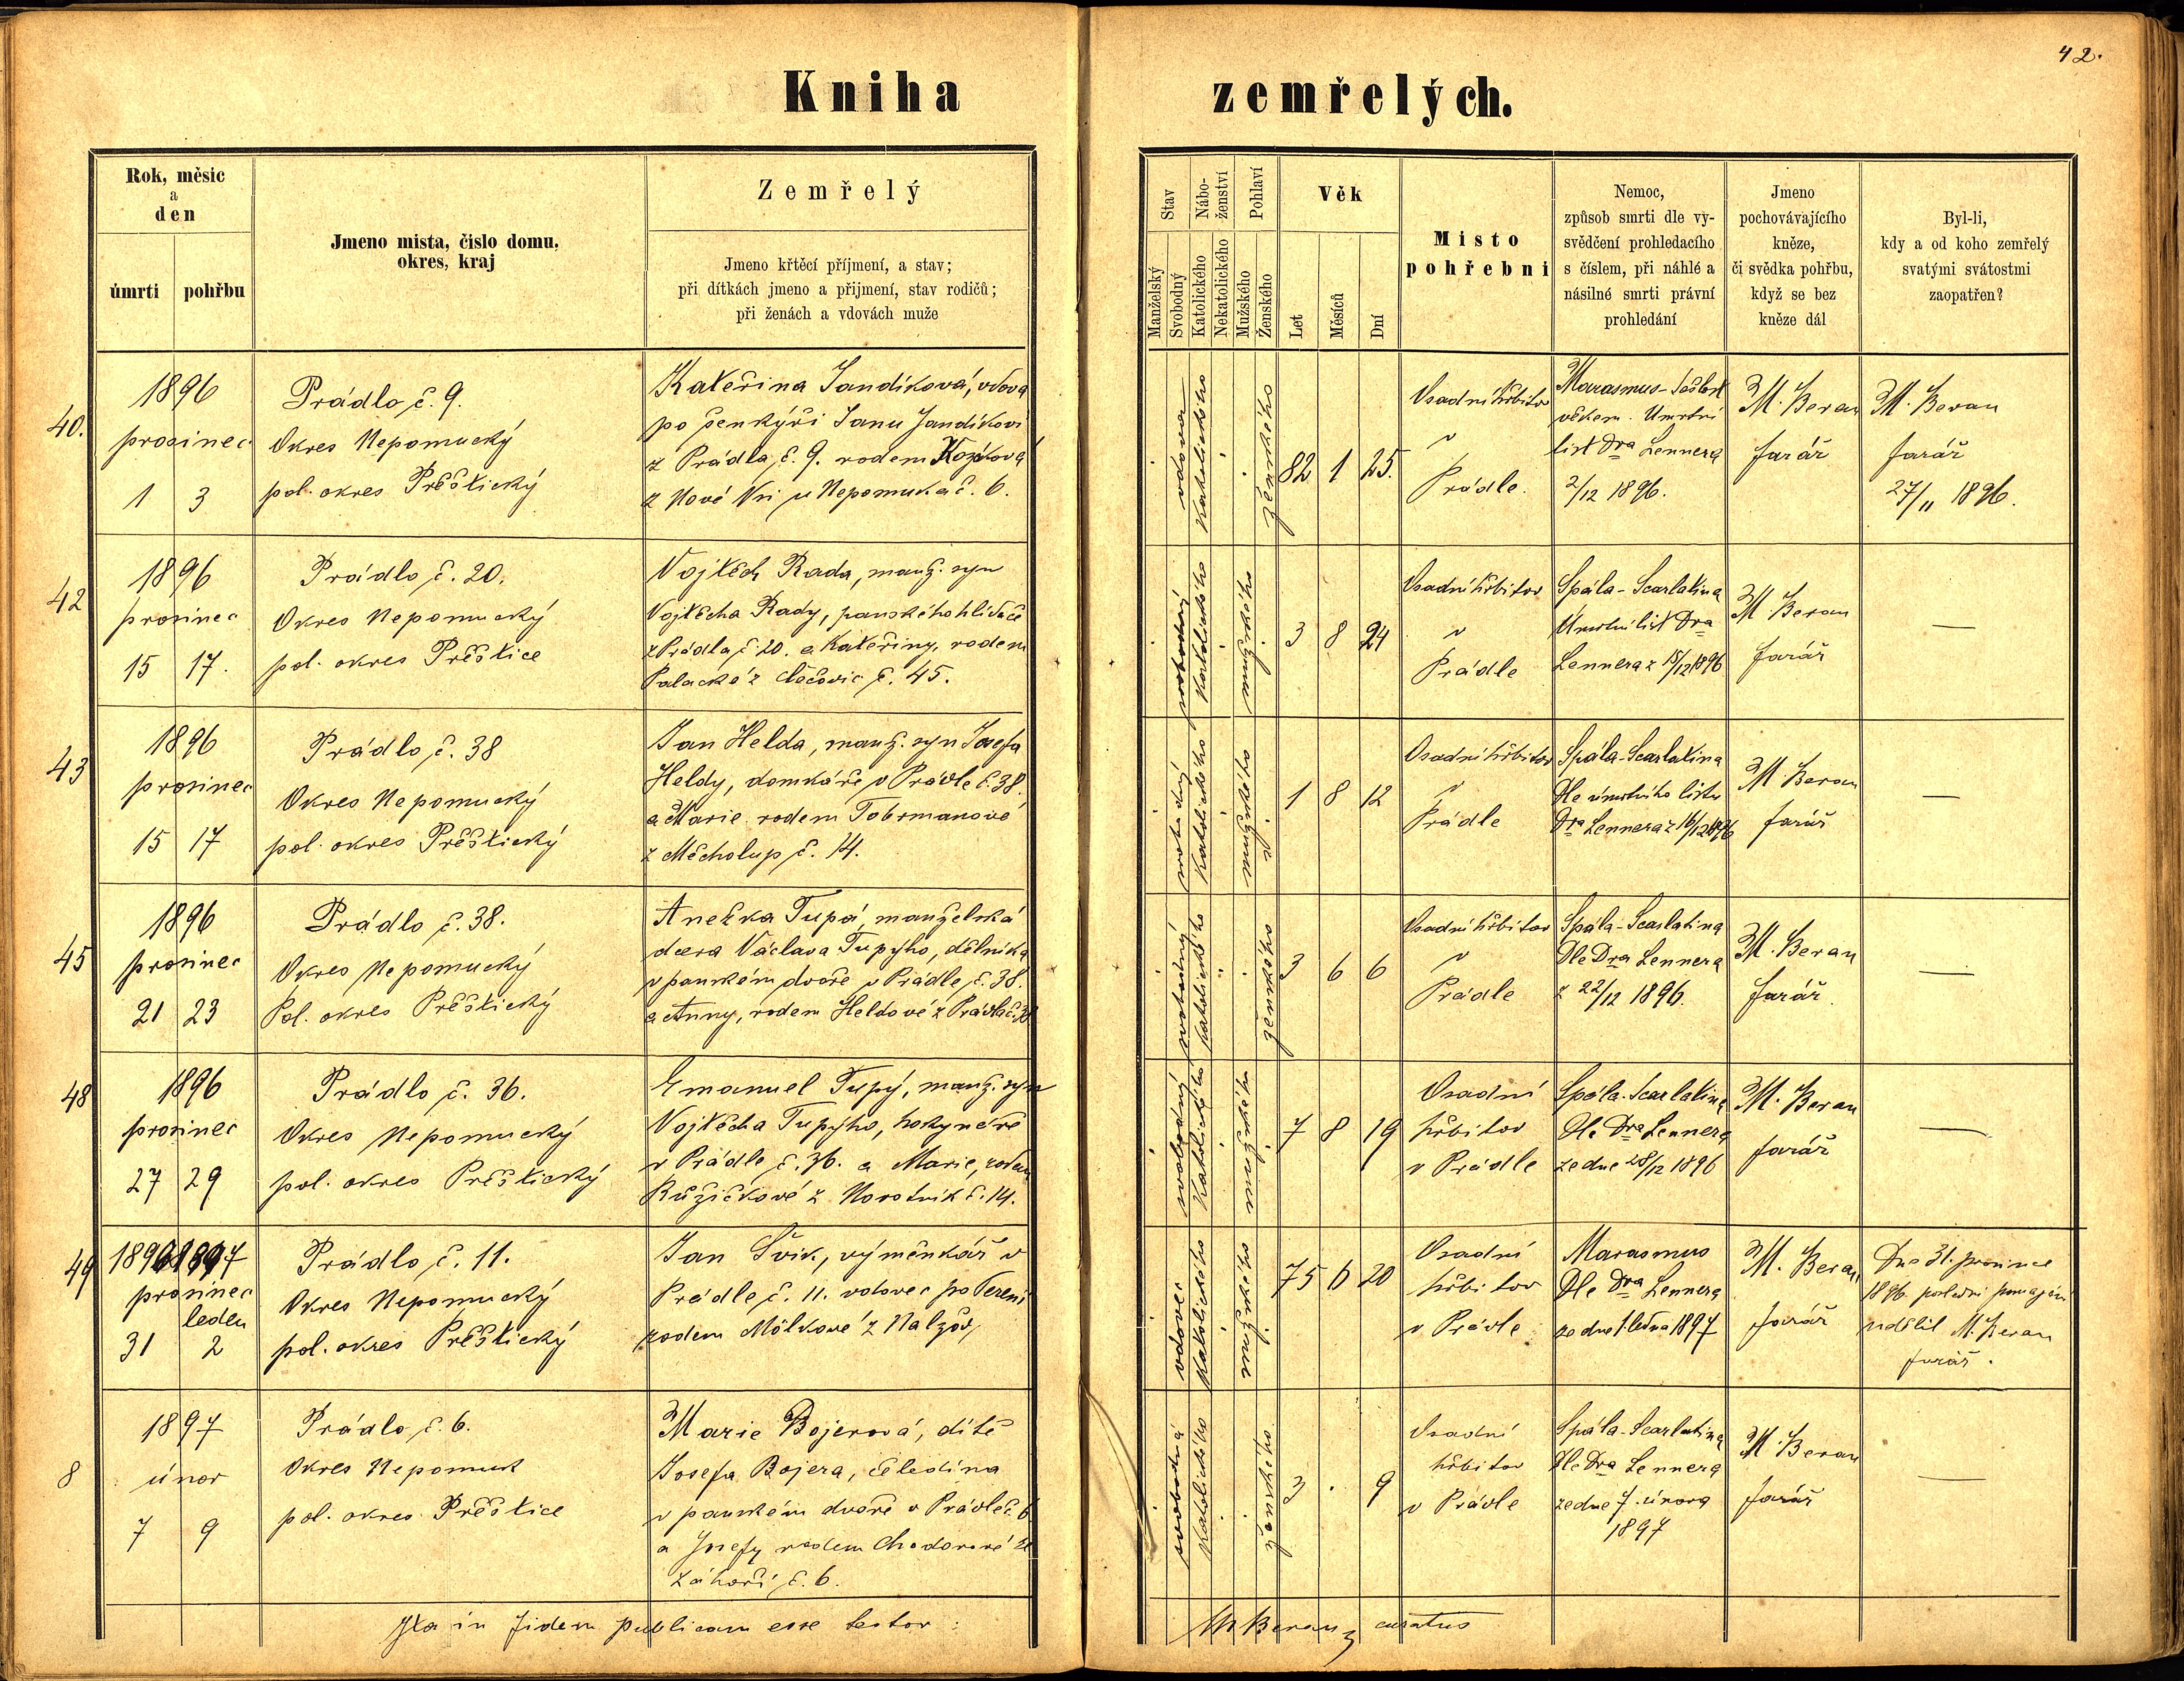 42.
Kniha zemřelých.
Rok, měsíc
a
den
úmrtí
pohřbu
Jmeno místa, číslo domu,
okres, kraj
Zemřelý
Jmeno křtěcí příjmení, a stav;
při dítkách jmeno a přijmení, stav rodičů;
při ženách a vdovách muže
Stav
Manželský
Svobodný
Nábo-
ženství
Katolického
Nekatolického
Pohlaví
Mužského
Ženského
Věk
Let
Měsíců
Dní
Místo
pohřební
Nemoc,
způsob smrti dle vy-
svědčení prohledacího
s číslem, při náhlé a
násilné smrti právní
prohledání
Jmeno
pochovávajícího
kněze,
či svědka pohřbu,
když se bez
kněze dál
Byl-li,
kdy a od koho zemřelý
svatými svátostmi
zaopatřen?
40.
1896
prosinec
1 3
Prádlo č. 9.
Okres Nepomucký
pol. okres Přeštický
Kateřina Jandíková, vdova
po šenkýři Janu Jandíkovi
z Prádla č. 9. rodem
z Nové Vsi u Nepomuka č. 6.
vdova
katolického
ženského
82 1 25.
Osadní hřbitov
v
Prádle.
Marasmus - Sešlost
věkem. Úmrtní
list Dra Lennera
2/12 1896.
M. Beran
farář
M. Beran
farář
27/11 1896.
42
1896
prosinec
15 17.
Prádlo č. 20.
Okres Nepomucký
pol. okres Přeštice
Vojtěch Rada, manž. syn
Vojtěcha Rady, panského hlídače
z Prádla č. 20. a Kateřiny, rodem
Palacké z č. 45.
svobodný
katolického
mužského
3 8 24
Osadní hřbitov
v
Prádle
Spála - Scarlatina
Úmrtní list Dra
Lennera z 15/12 1896
M. Beran
farář
—
43
1896
prosinec
15 17
Prádlo č. 38
Okres Nepomucký
pol. okres Přeštický
Jan Helda, manž. syn Josefa
Heldy, domkáře v Prádle č. 38.
a Marie rodem Tobrmanové
z Měcholup č. 14.
svobodný
katolického
mužského
1 8 12
Osadní hřbitov
v
Prádle
Spála - Scarlatina
Dle úmrtního listu
Dra Lennera z 16/12 1896
M. Beran
farář
—
45
1896
prosinec
21 23
Prádlo č. 38.
Okres Nepomucký
Pol. okres Přeštický
Anežka Tupá, manželská
dcera Václava Tupýho, dělníka
v panském dvoře v Prádle č. 38.
a Anny, rodem Heldové z Prádla č. 38
svobodný
katolického
ženského
3 6 6
Osadní hřbitov
v
Prádle
Spála - Scarlatina
Dle Dra Lennera
z 22/12 1896.
M. Beran
farář.
—
48
1896
prosinec
27 29
Prádlo č. 36.
Okres Nepomucký
pol. okres Přeštický
Emanuel Tupý, manž. syn
Vojtěcha Tupýho, hokynáře
v Prádle č. 36. a Marie, rodem
Růžičkové z Novotník č. 14.
svobodný
katolického
mužského
7 8 19
Osadní
hřbitov
v Prádle
Spála - Scarlatina
Dle Dra Lennera
ze dne 28/12 1896
M. Beran
farář
—
49
1896 1897
prosinec
leden
31 2
Prádlo č. 11.
Okres Nepomucký
pol. okres Přeštický
Jan Švik, výměnkář v
Prádle č. 11. vdovec po Terezii
rodem z Nalžov
vdovec
katolického
mužského
75 6 20
Osadní
hřbitov
v Prádle
Marasmus
Dle Dra Lennera
ze dne 1. ledna 1897
M. Beran
farář
Dne 31. prosince
1896 poslední pomazání
udělil M. Beran
farář.
8
1897
únor
7 9
Prádlo č. 6.
Okres Nepomuk
pol. okres Přeštice
Marie Bojerová, dítě
Josefa Bojera, čeledína
v panském dvoře v Prádle č. 6
a Josefy rodem Chodorové ze
Záhoří č. 6.
svobodná
katolického
ženského
3 . 9
Osadní
hřbitov
v Prádle
Spála - Scarlatina
Dle Dra Lennera
ze dne 7. února
1897
M. Beran
farář
—
Ita in fidem publicam esse testor:
M Beran, curatus